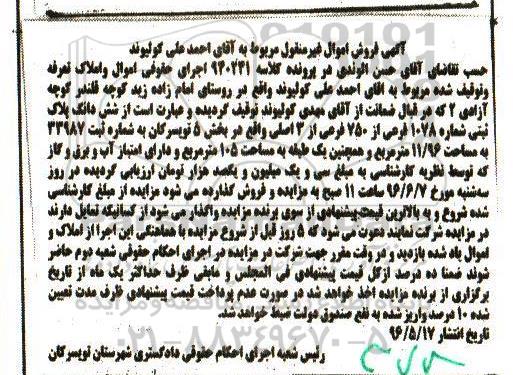 آگهی فروش اموال غیرمنقول مربوط به آقای احمد علی گولیوند
حسب تقاضای آقای حسن الوندی در پرونده کلاسه ۹۴۰۲۳۱ اجرای حقوقی اموال واملاک تعرفه
وتوقیف شده مربوط به اقای احمد علی گولیوند واقع در روستای امام زاده زید کوچه قلندر کوچه
آزادی ۲ که در قبال ضمانت از آقای مهدی گولیوند توقیف گردیده و عبارت است از شش دانگ پلاک
ثبتی شماره ۱۰۷۸ فرعی از ۷۵۰ فرعی از ۲ اصلی واقع در بخش ۵ تویسرکان به شماره ثبت ۳۳۹۸۷
به مساحت ۱۱/۹۶ مترمربع و همچنین یک طبقه به مساحت ۱۰۵ مترمربع و دارای امتیاز آب و برق و گاز
که توسط نظریه کارشناسی به مبلغ سی و یک میلیون و یکصد هزار تومان ارزیابی گردیده در روز
سه‌شنبه مورخ ۹۶/۶/۷ ساعت ۱۱ صبح به مزایده و فروش گذارده می شود مزایده از مبلغ کارشناسی
شده شروع و به بالاترین قیمت پیشنهادی از سوی برنده مزایده واگذار می شود از کسانیکه تمایل دارند
در مزایده شرکت نمایند دعوت می شود که ۵ روز قبل از شروع مزایده با هماهنگی این اجرا از املاک و
اموال یاد شده بازدید و در وقت مقرر جهت شرکت در مزایده در اجرای احکام حقوقی شعبه دوم حاضر
شوند ضمنا ده درصد ازکل قیمت پیشنهادی فی المجلس و مابقی ظرف حداکثر یک ماه از تاریخ
برگزاری از برنده مزایده اخذ خواهد شد در صورت عدم پرداخت قیمت پیشنهادی ظرف مدت تعیین
شده ۱۰ درصد واریز شده به نفع صندوق دولت ضبط خواهد شد.
تاریخ انتشار ۹۶/۵/۱۷
رئیس شعبه اجرای احکام حقوقی دادگستری شهرستان تویسرکان
۰۲۱-۸۸۳۴۹۶۷۰-۵